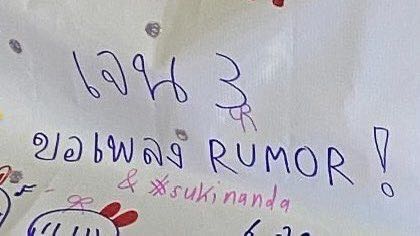 เจน 3
ขอเพลง RUMOR !
& *sukinanda